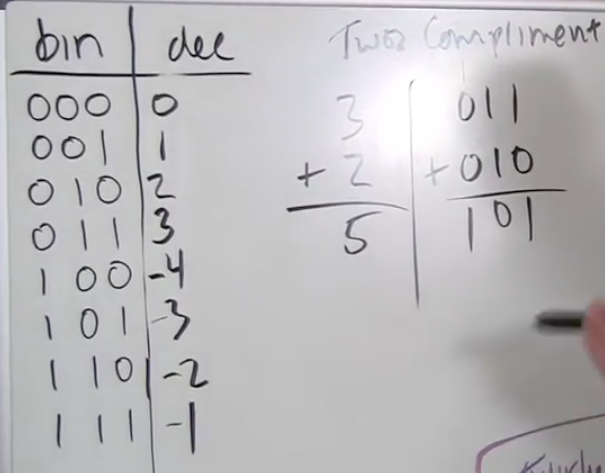 bin dec
000 0
001 1
010 2
011 3
100 -4
101 -3
110 -2
111 -1
Twos Compliment
3 011
+ 2 +010
5 101